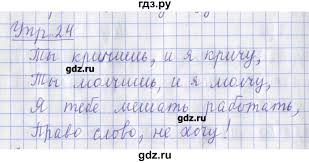 гдз.ру
Упр 24
Ты кричишь, и я кричу,
gdz.ru
Ты молчишь, и я молчу,
gdz.ru
Я тебе мешать работать,
gdz.ru
Право слово, не хочу!
gdz.ru